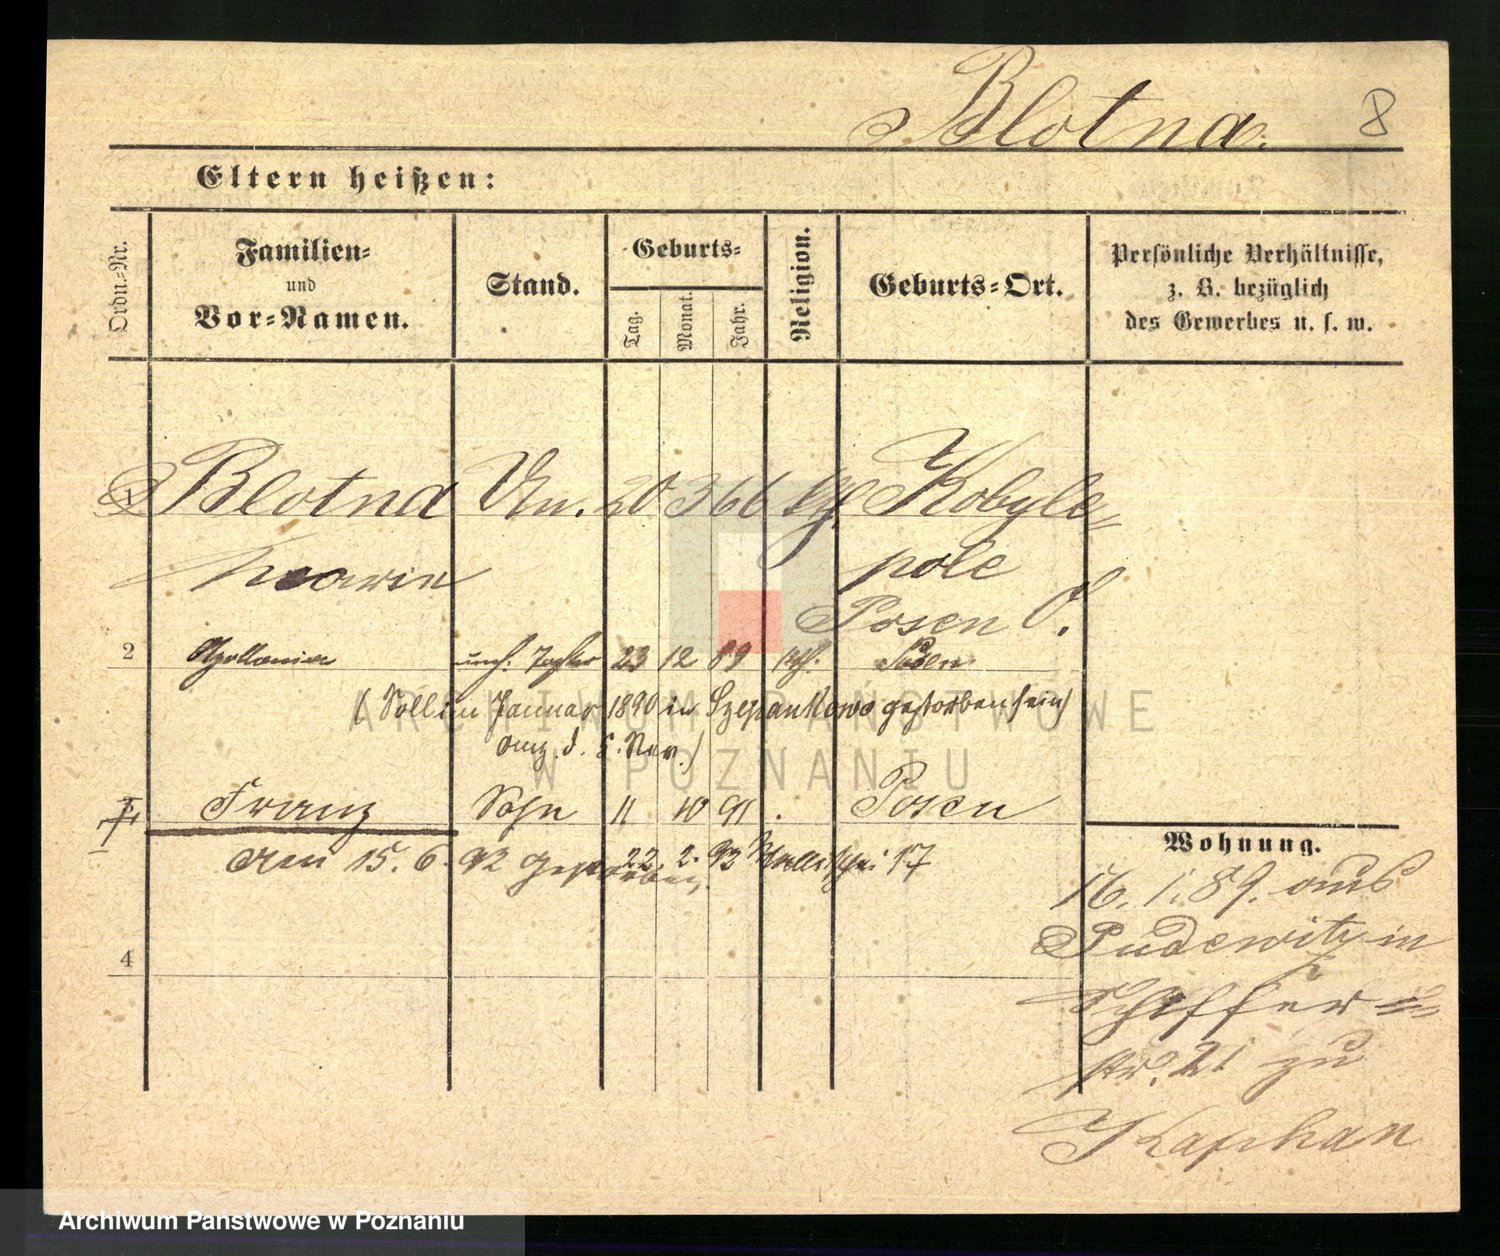 Blotna.
8
Eltern heißen:
Ordn.-Nr.
Familien- und Vor-Namen.
Stand.
Geburts-
Tag.
Monat.
Jahr.
Religion.
Geburts-Ort.
Persönliche Verhältnisse,
z. B. bezüglich
des Gewerbes u. s. w.
1 Blotna Un. 20 3 66 kgl Kobyle-
Marie pole
Posen O.
2 Apollonia uneh. Tochter 23 12 89 kth. Posen
(Soll im Januar 1890 in Szepankowo gestorben sein
anz. d. 5. Nov.)
3 Franz Sohn 11 10 91 . Posen
den 15. 6. 92 gestorben. 22. 2. 93 Wallischei 17
4
Wohnung.
16. 1. 89. aus
Pudewitz in
Schiffer-
str. 21 zu
Kaphan
ARCHIWUM PAŃSTWOWE
W POZNANIU
Archiwum Państwowe w Poznaniu